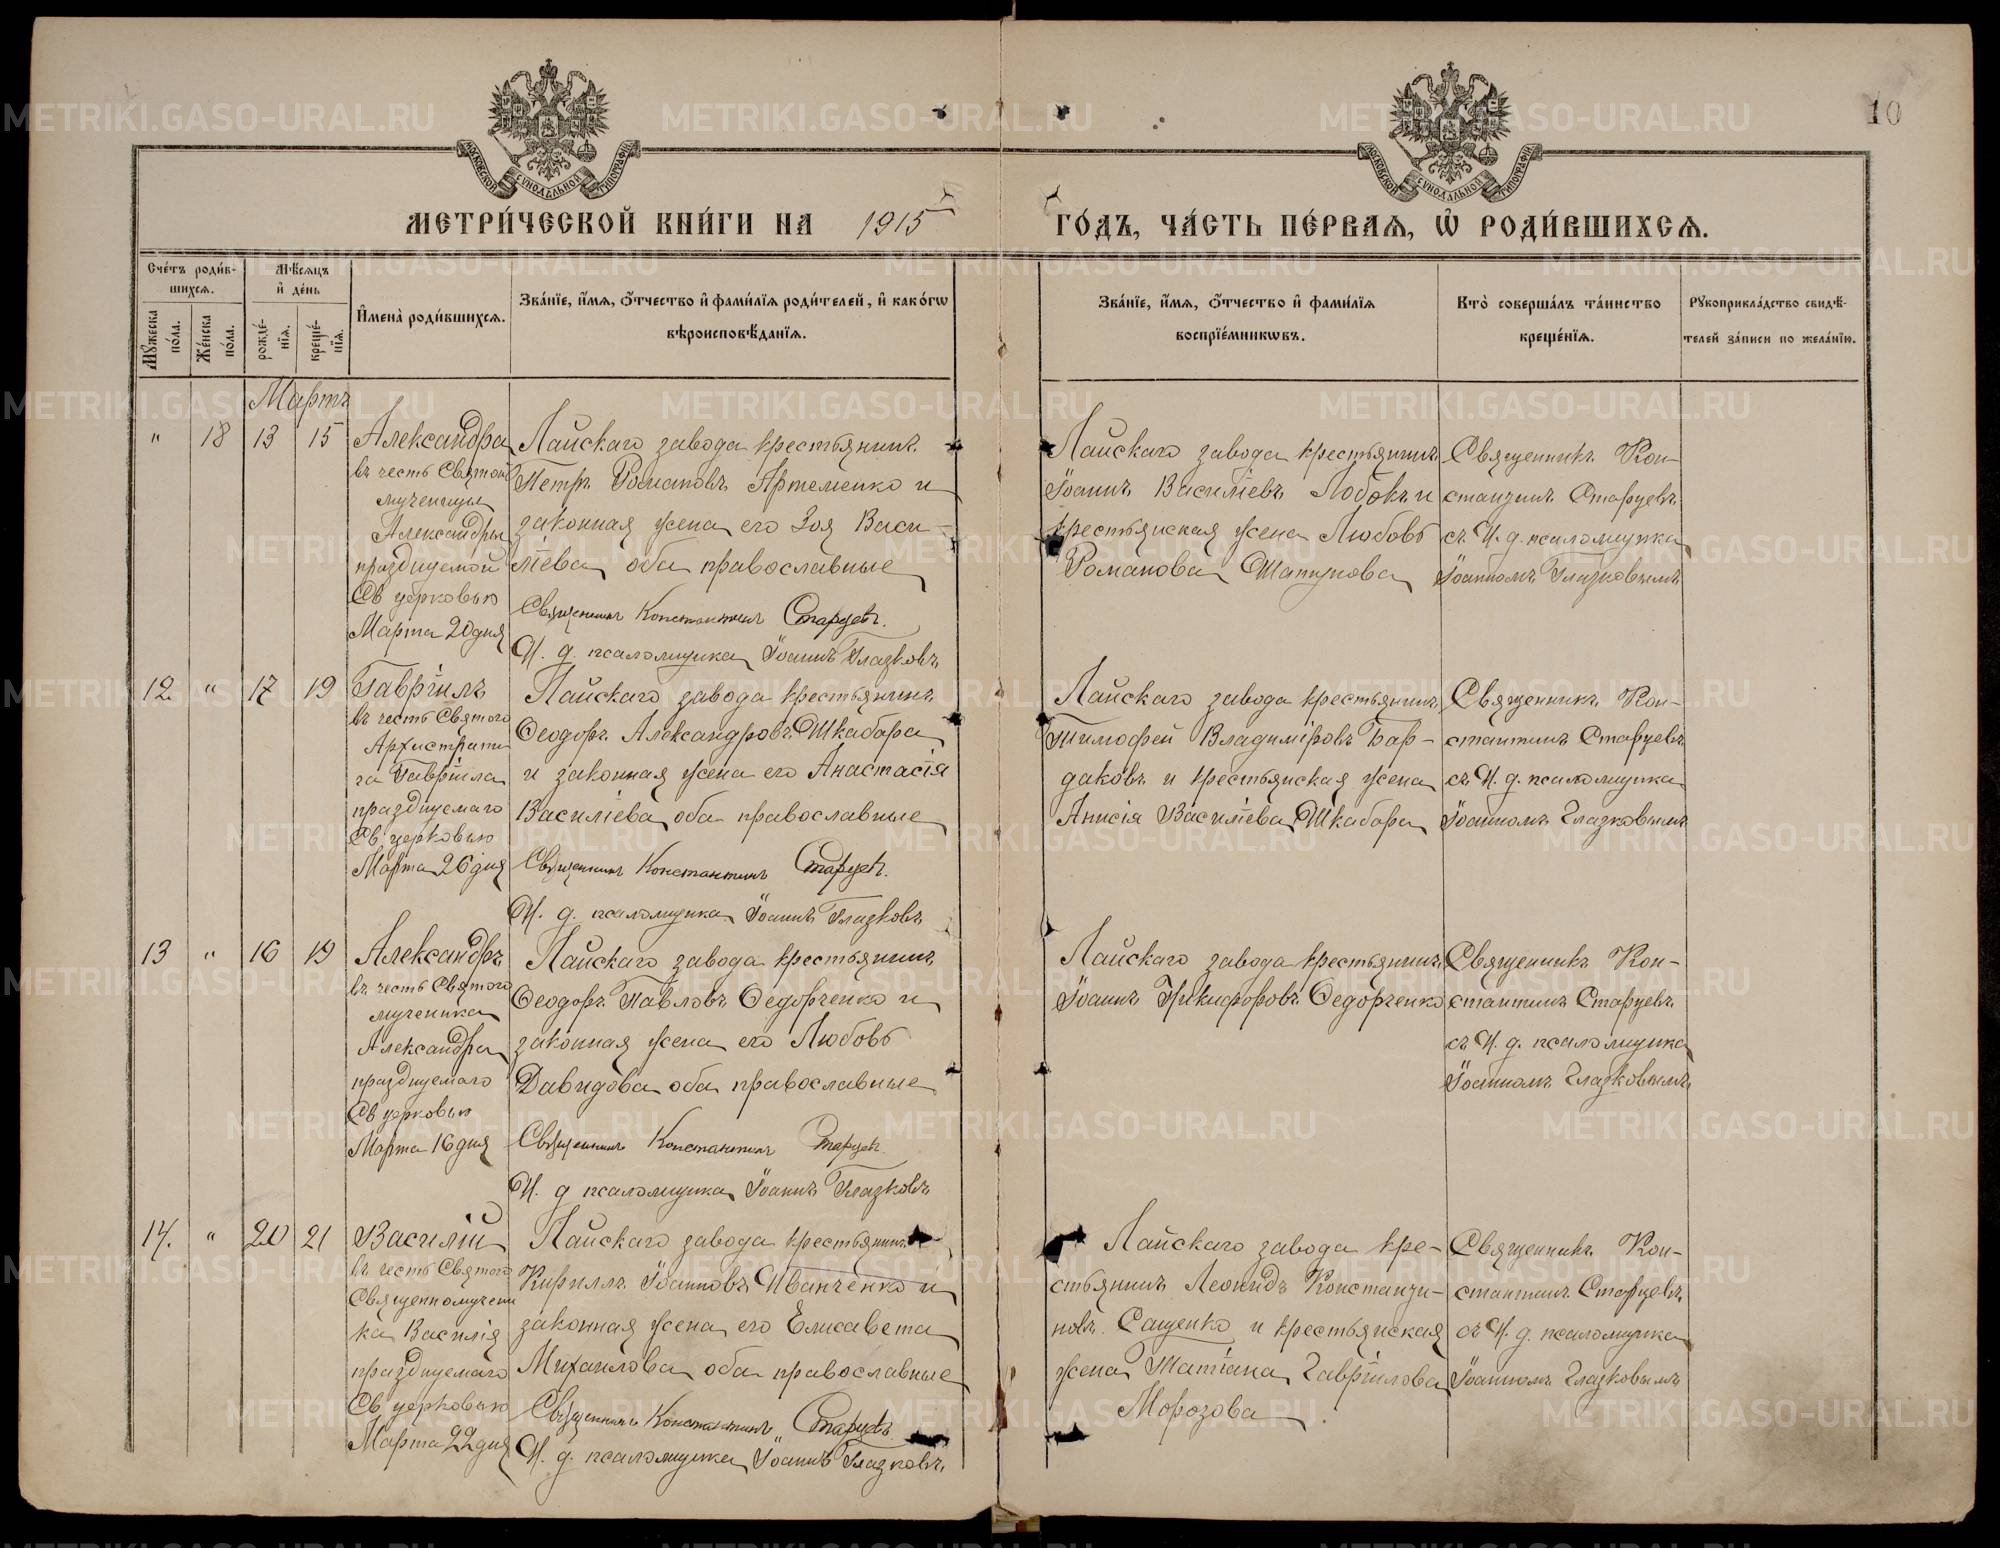 10
МОСКОВСКОЙ СѴНОДАЛЬНОЙ ТИПОГРАФІИ
МОСКОВСКОЙ СѴНОДАЛЬНОЙ ТИПОГРАФІИ
МЕТРИ́ЧЕСКОЙ КНИ́ГИ НА 1915 ГО́ДЪ, ЧА́СТЬ ПЕ́РВАЯ, Ѡ҆ РОДИ́ВШИХСЯ.
Сче́тъ роди́в-
шихся.
Мѣ́сяцъ
и҆ де́нь
Мꙋ́жеска по́ла.
Же́нска по́ла.
рожде́-
нїя.
креще́-
нїя.
И҆мена̀ роди́вшихся.
Зва́нїе, и҆́мя, ѻ҆́тчество и҆ фами́лїя роди́телей, и҆ како́гѡ
вѣроисповѣ́данїя.
Зва́нїе, и҆́мя, ѻ҆́тчество и҆ фами́лїя
воспрїе́мникѡвъ.
Кто̀ соверша́лъ та́инство
креще́нїя.
Рꙋкоприкла́дство свидѣ́-
телей за́писи по жела́нїю.
Мартъ
" 18 13 15
Александра
въ честь Святой
мученицы
Александры
празднуемой
Св церковью
Марта 20 дня
Лайскаго завода крестьянинъ
Петръ Романовъ Артеменко и
законная жена его Зоя Васи-
ліева, оба православные
Священникъ Константинъ Старцевъ.
И. д. псаломщика Іоаннъ Глазковъ
Лайскаго завода крестьянинъ
Іоаннъ Василіевъ Лобокъ и
крестьянская жена Любовь
Романова Шапунова
Священникъ Кон-
стантинъ Старцевъ
съ И. д. псаломщика
Іоанномъ Глазковымъ
12 " 17 19
Гавріилъ
въ честь Святого
Архистрати
га Гавріила
празднуемаго
Св церковью
Марта 26 дня
Лайскаго завода крестьянинъ
Ѳеодоръ Александровъ Шкабара
и законная жена его Анастасія
Василіева, оба православные
Священникъ Константинъ Старцевъ.
И. д. псаломщика Іоаннъ Глазковъ
Лайскаго завода крестьянинъ
Тимофей Владиміровъ Бар-
даковъ и крестьянская жена
Анисія Василіева Шкабара
Священникъ Кон-
стантинъ Старцевъ
съ И. д. псаломщика
Іоанномъ Глазковымъ
13 " 16 19
Александръ
въ честь Святого
мученика
Александра
празднуемаго
Св церковью
Марта 16 дня
Лайскаго завода крестьянинъ
Ѳеодоръ Павловъ Ѳедорченко и
законная жена его Любовь
Давидова оба православные
Священникъ Константинъ Старцевъ.
И. д псаломщика Іоаннъ Глазковъ
Лайскаго завода крестьянинъ
Іоаннъ Никифоровъ Ѳедорченко
Священникъ Кон-
стантинъ Старцевъ
съ И. д. псаломщика
Іоанномъ Глазковымъ
14. " 20 21
Василій
въ честь Святого
Священномучени
ка Василія
празднуемаго
Св церковью
Марта 22 дня
Лайскаго завода крестьянинъ
Кириллъ Іоанновъ Иванченко и
законная жена его Елисавета
Михаилова оба православные
Священникъ Константинъ Старцевъ
И. д. псаломщика Іоаннъ Глазковъ
Лайскаго завода кре-
стьянинъ Леонидъ Константи-
новъ Сащенко и крестьянская
жена Татіана Гавріилова
Морозова
Священникъ Кон-
стантинъ Старцевъ
съ И. д. псаломщика
Іоанномъ Глазковымъ
METRIKI.GASO-URAL.RU